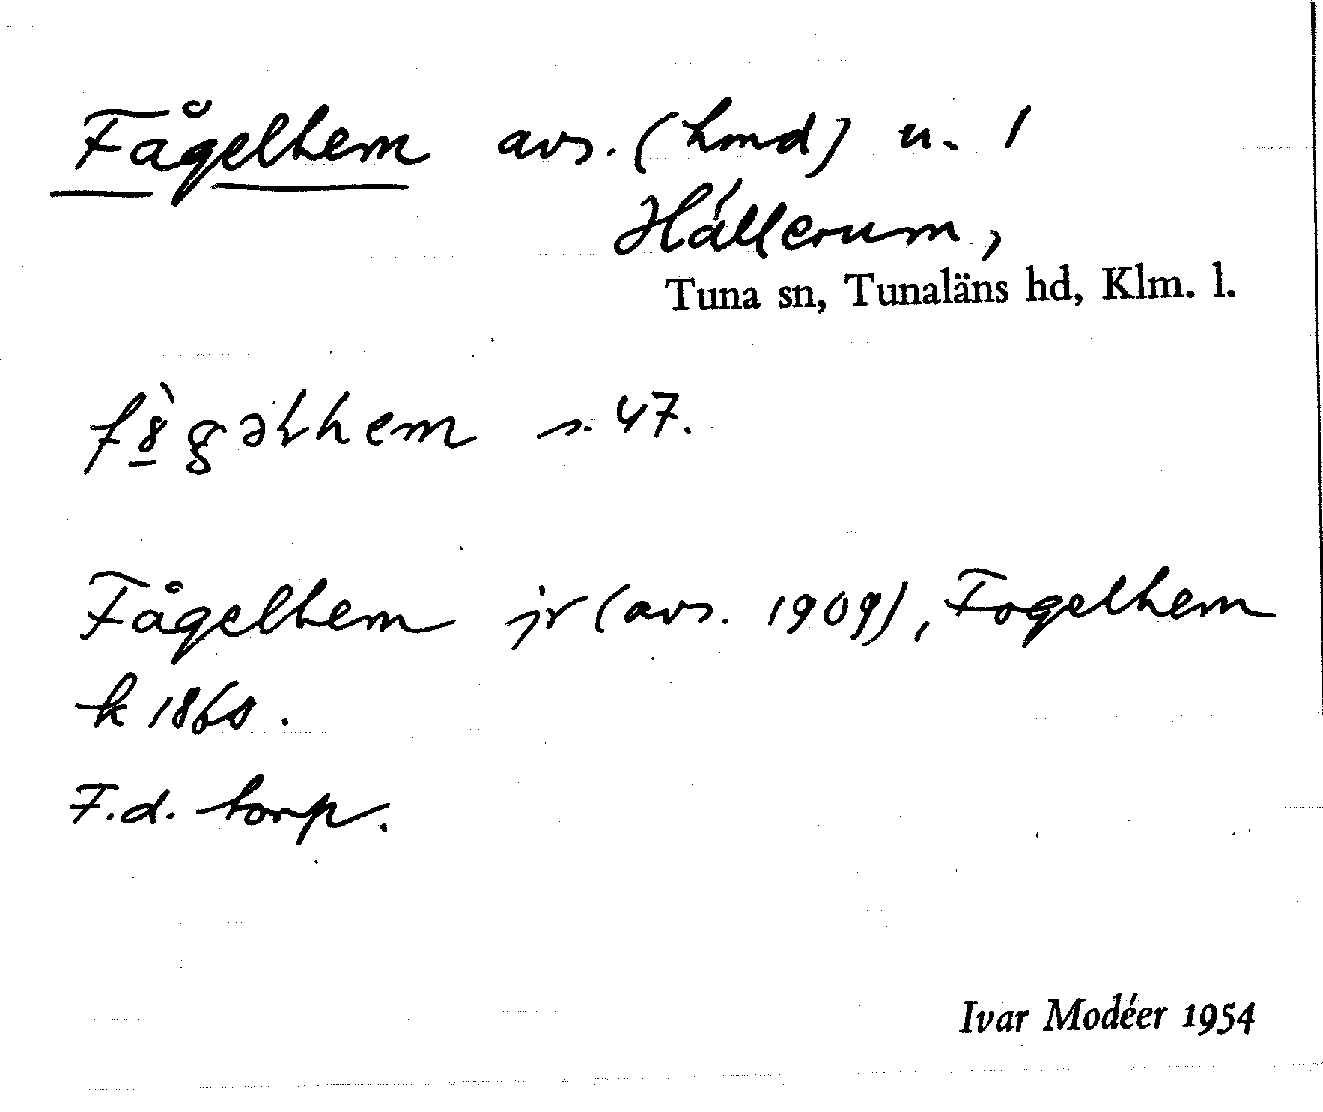 Fågelhem avs. (hmd) u. 1
Hállerum,
Tuna sn, Tunaläns hd, Klm. l.
s. 47.
Fågelhem jr (avs. 1909), Fogelhem
k 1860.
F.d. torp.
Ivar Modéer 1954